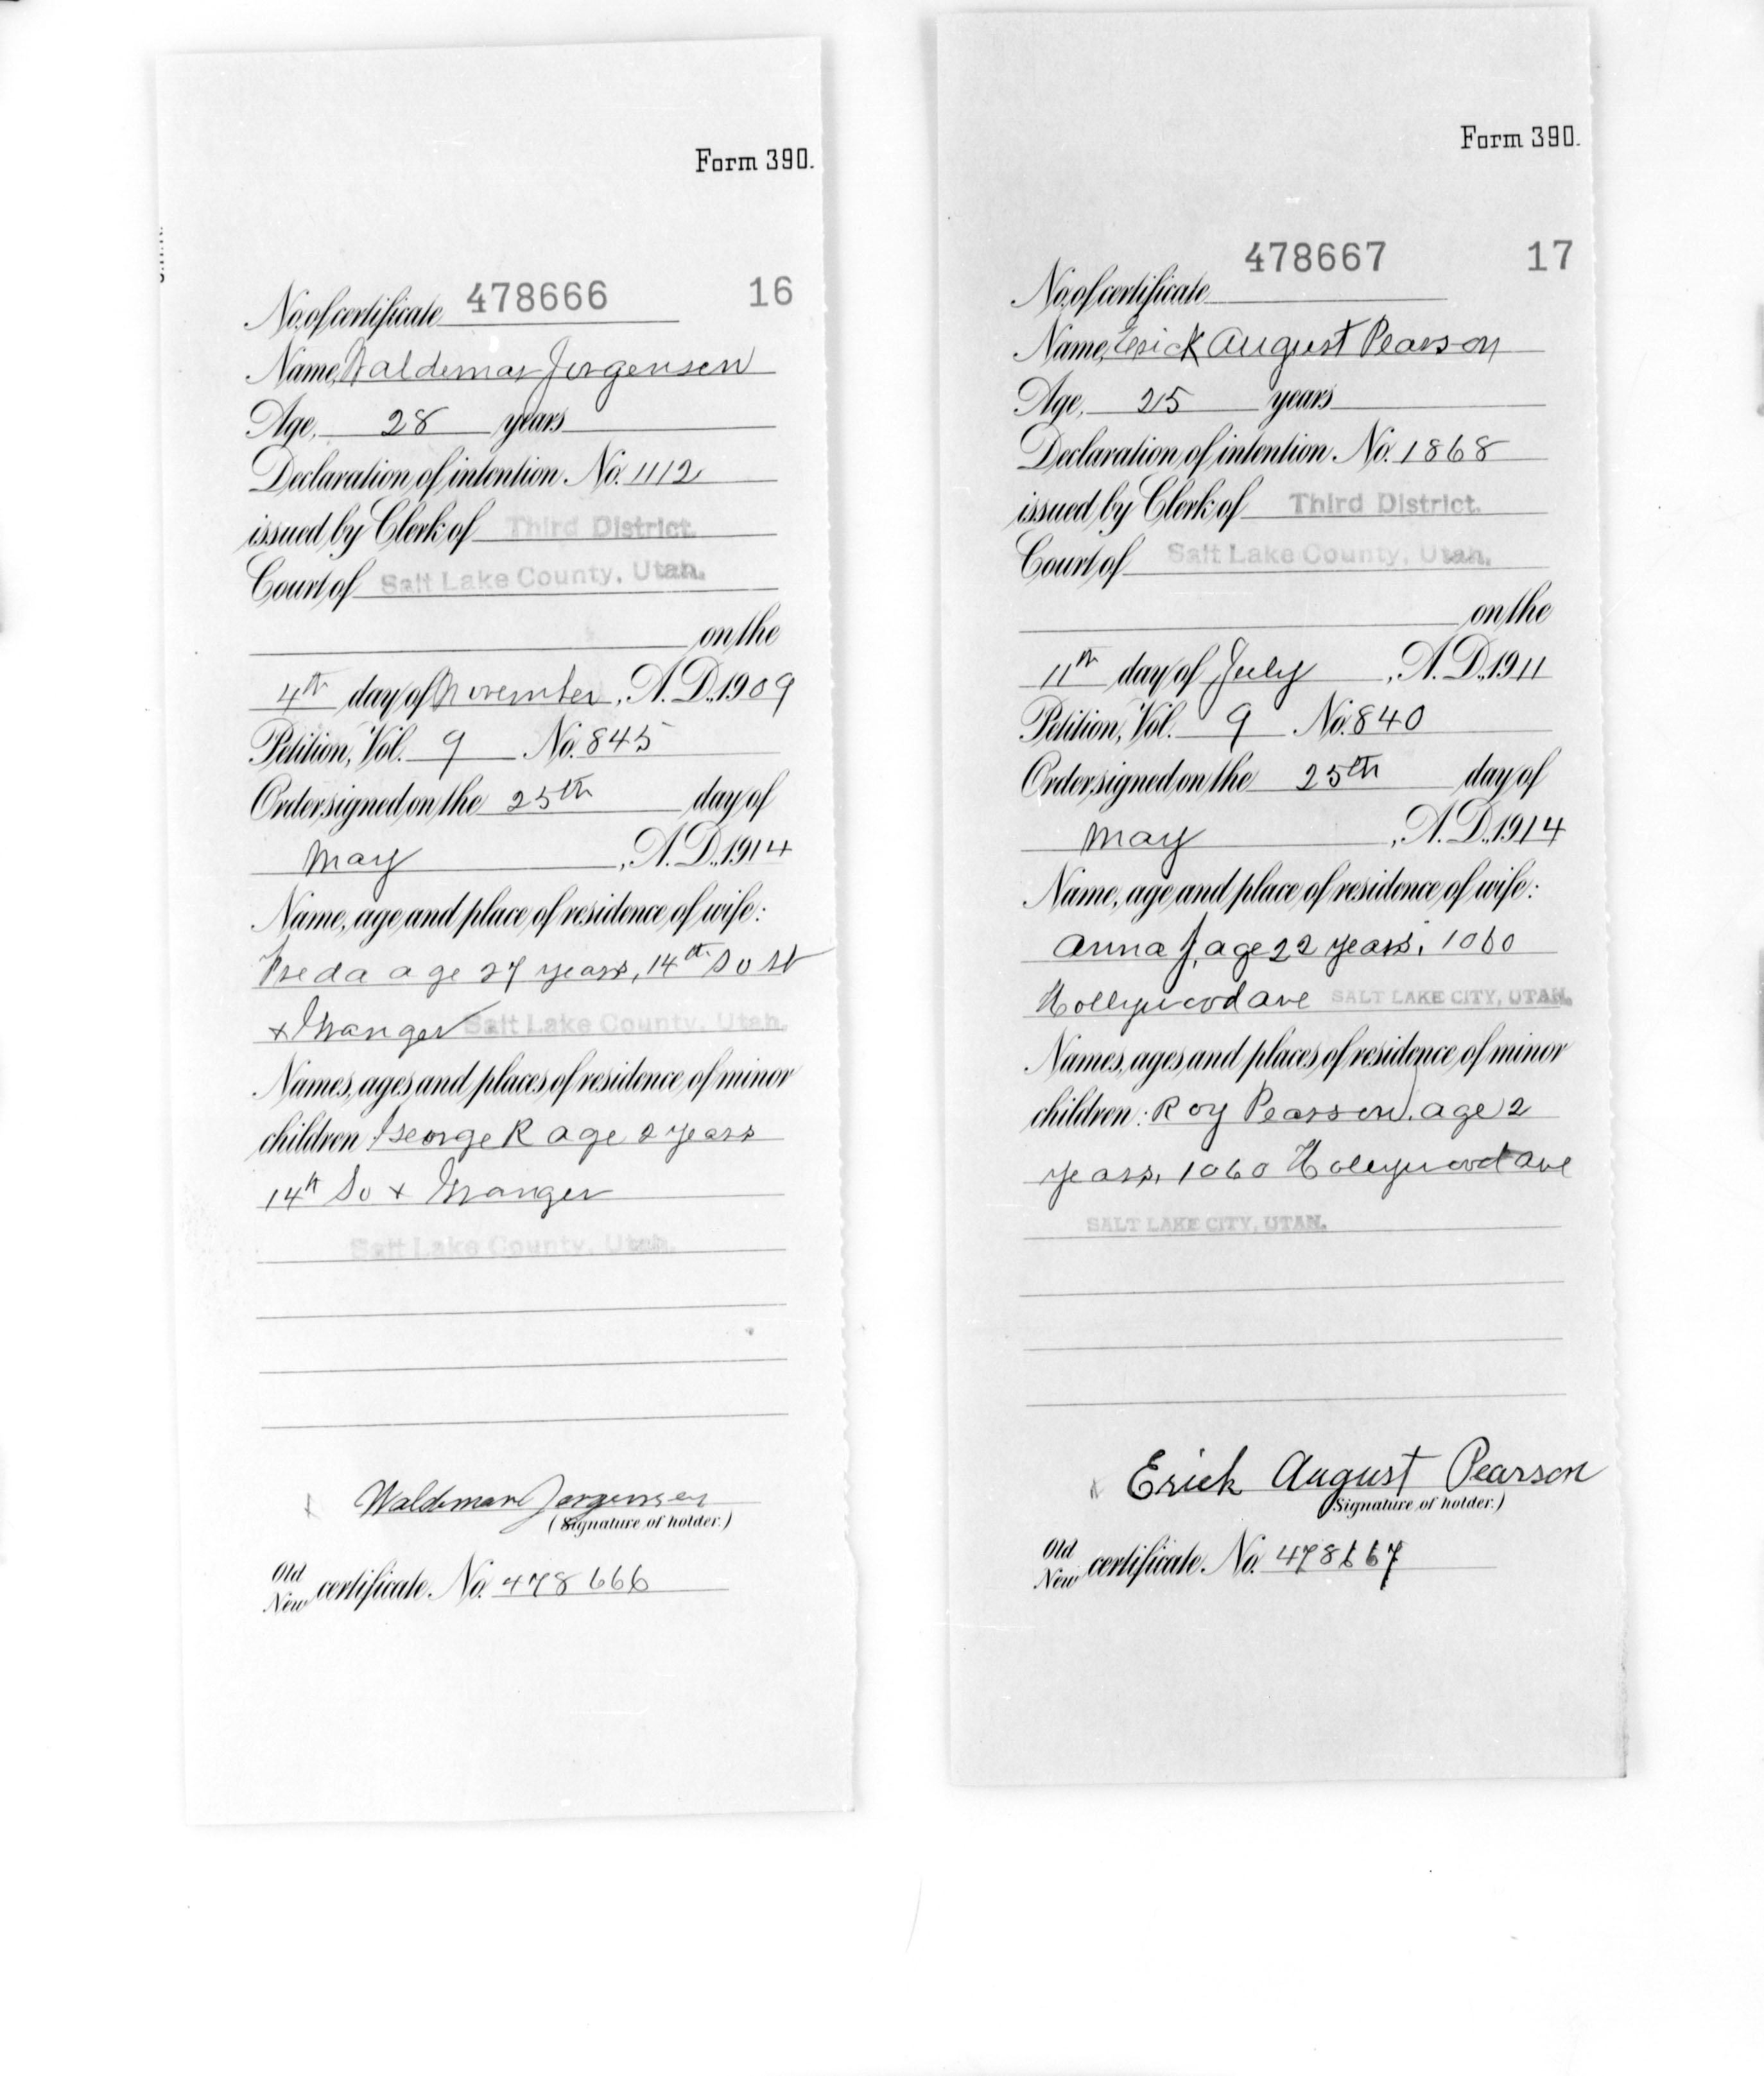 Form 390.
No. of certificate 478666 16
Name, Waldemar Jorgensen
Age, 28 years
Declaration of intention No. 1112
issued by Clerk of Third District.
Court of Salt Lake County, Utah.
on the
4th day of November, A.D., 1909
Petition, Vol. 9 No. 845
Order signed on the 25th day of
May, A.D., 1914
Name, age and place of residence of wife:
Freda age 27 years, 14th So St
+ Granger Salt Lake County, Utah.
Names, ages and places of residence of minor
children: George R age 2 years
14th So + Granger
Salt Lake County, Utah.
Waldemar Jorgensen
(Signature of holder.)
Old
New certificate. No. 478666
Form 390.
478667 17
No. of certificate
Name, Erick August Pearson
Age, 25 years
Declaration of intention No. 1868
issued by Clerk of Third District.
Court of Salt Lake County, Utah.
on the
11th day of July, A.D. 1911
Petition, Vol. 9 No. 840
Order signed on the 25th day of
May, A.D., 1914
Name, age and place of residence of wife:
Anna J, age 22 years, 1060
Hollywood ave SALT LAKE CITY, UTAH.
Names, ages and places of residence of minor
children: Roy Pearson, age 2
years, 1060 Hollywood ave
SALT LAKE CITY, UTAH.
Erick August Pearson
(Signature of holder.)
Old
New certificate. No. 478667